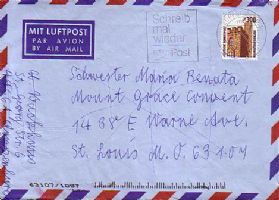 MIT LUFTPOST
PAR AVION
BY AIR MAIL
Schreib
mal
wieder
Post
300
Schwester Maria Renata
Mount Grace Convent
1438 E Warne Ave.
St. Louis M.O 63107
63107/1087